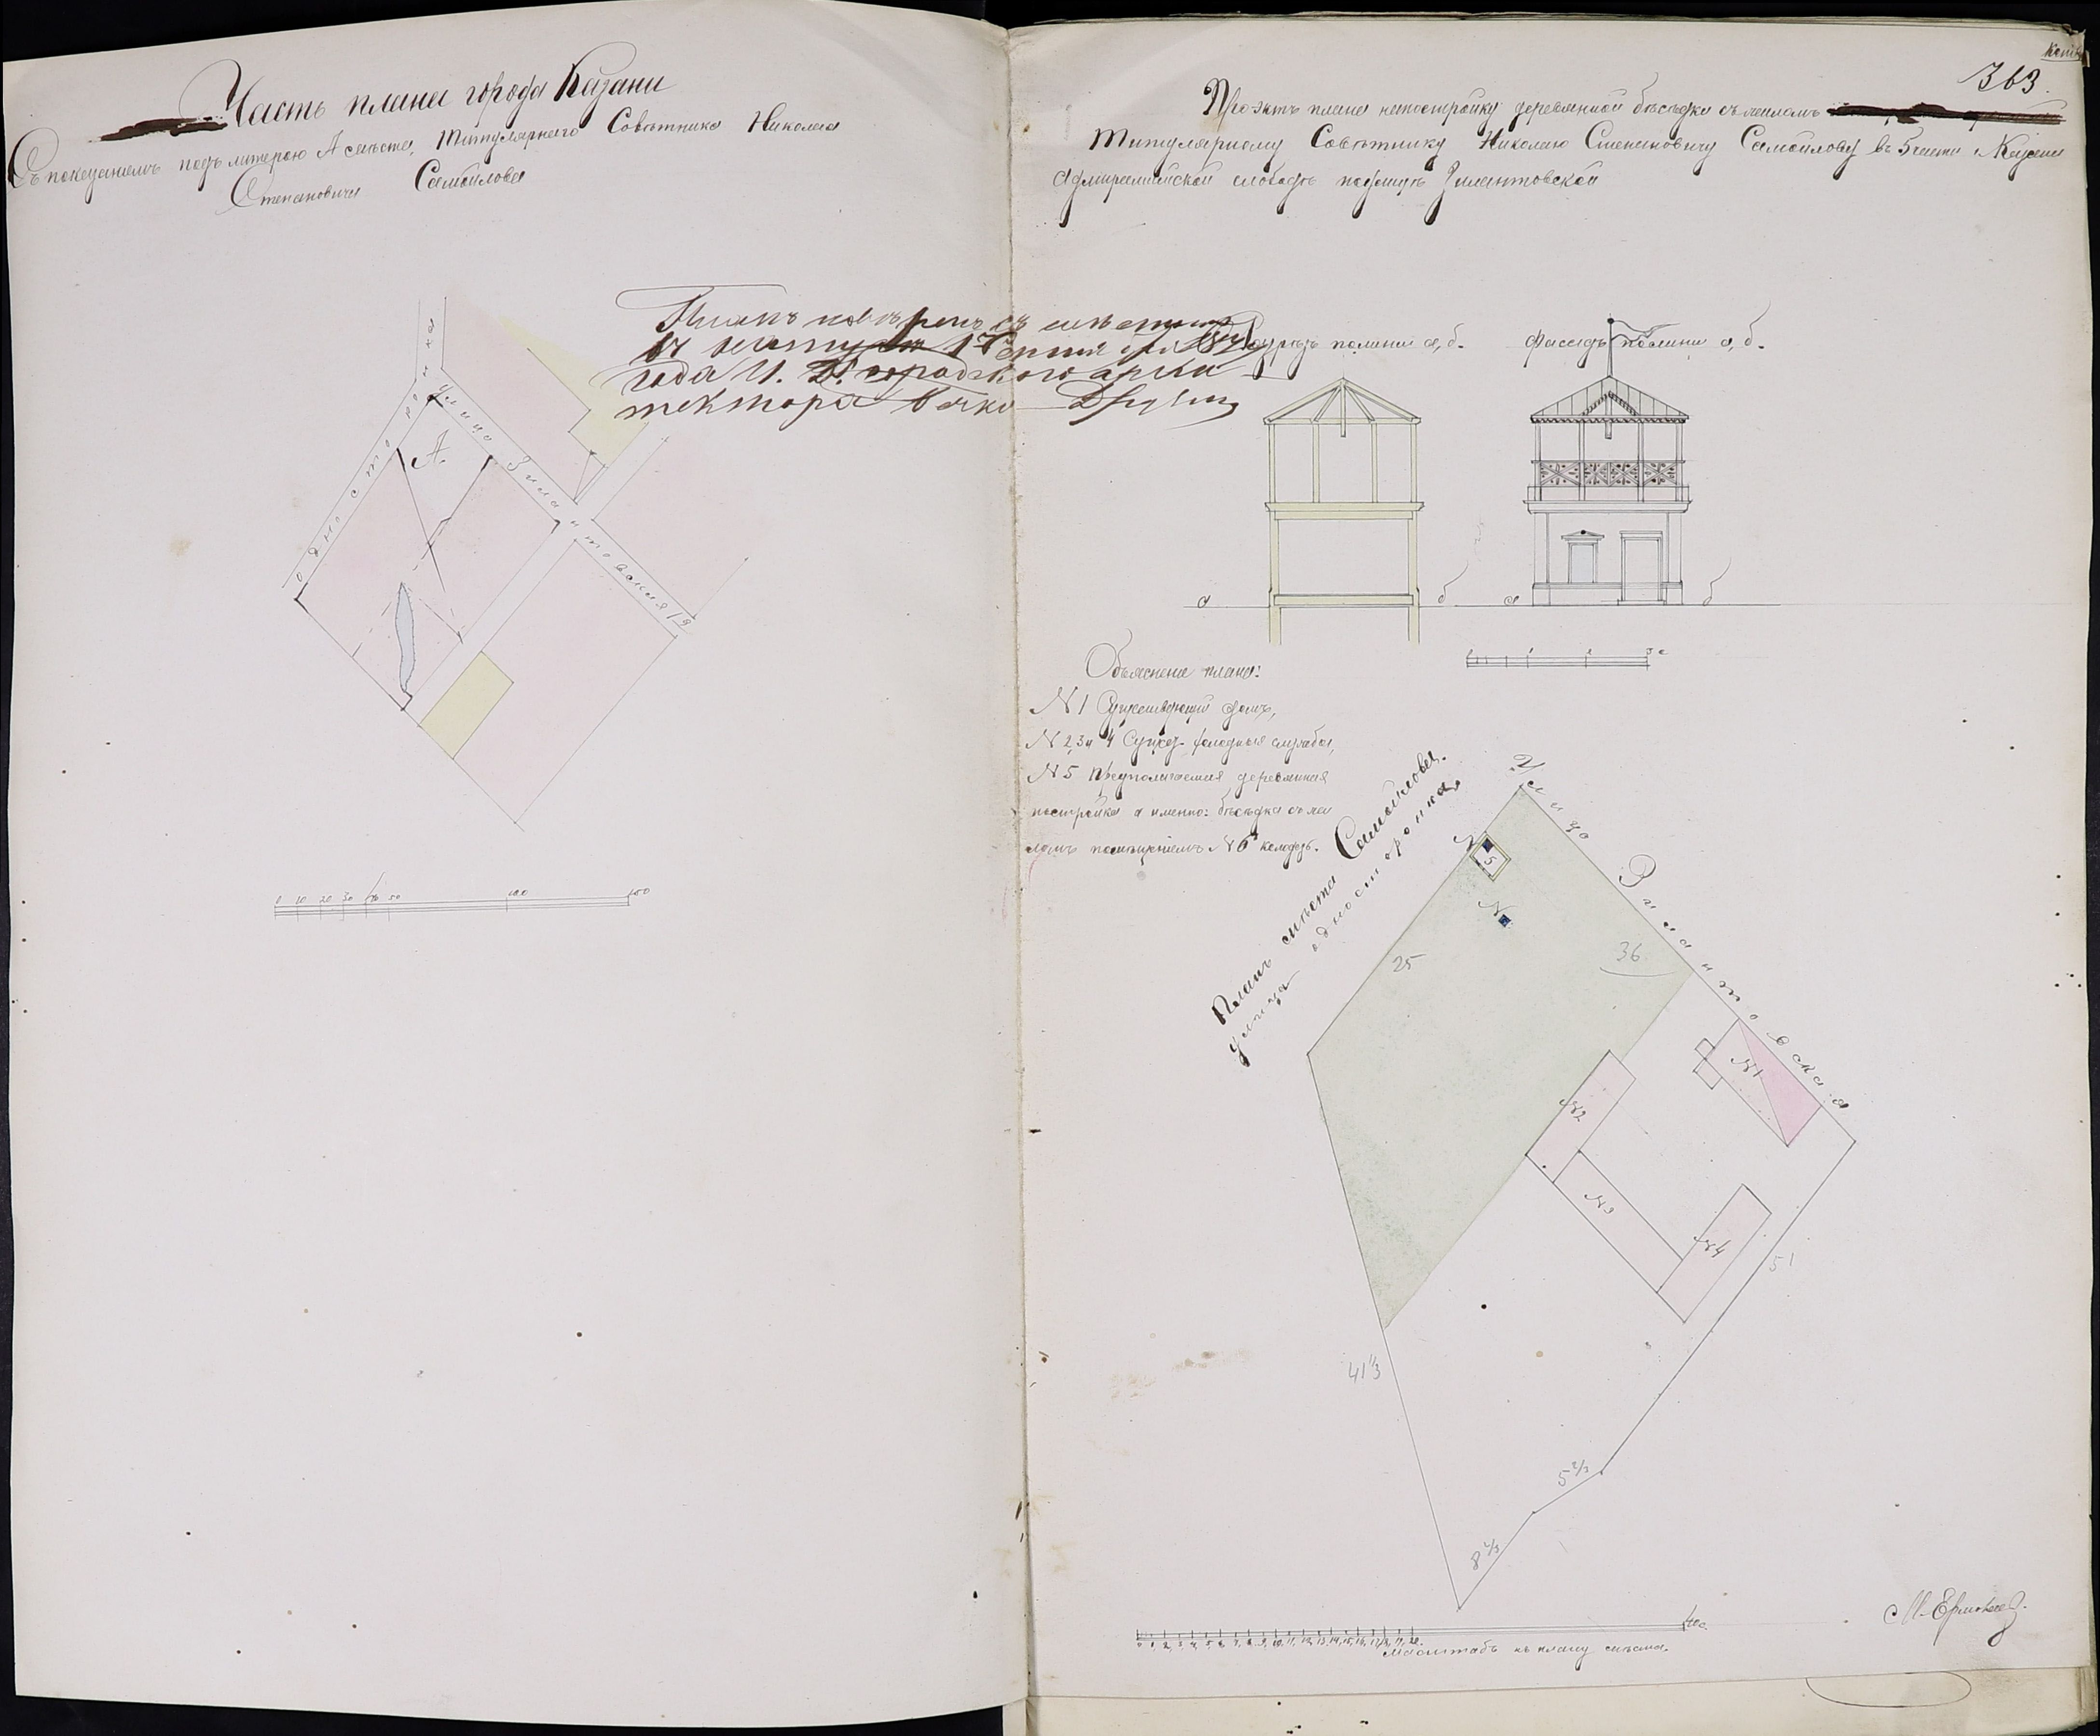 Часть плана города Казани
Съ показаніемъ подъ литерою А мѣста, Титулярнаго Совѣтника Николая
Степановича Самойлова
363.
Проэктъ плана на постройку деревянной бесѣдки съ жилымъ
Титулярному Совѣтнику Николаю Степановичу Самойлову въ 5 части г. Казани
Адмиралтейской слободѣ по улицѣ Зилантовской
Планъ повѣренъ съ мѣстомъ
въ натурѣ
года И. Д. городского архи
тектора
Разрѣзъ по линіи а, б.
Фасадъ по линіи а, б.
а
б
а
б
1
2
3 с
Объясненіе плана:
N 1 Существующій домъ,
N 2, 3 и 4 Сущес. холодныя службы,
N 5 Предполагаемая деревянная
постройка а именно: бесѣдка съ жи
лымъ помѣщеніемъ N 6 колодезь.
Улица Зилантовская
односторонка
А.
0 10 20 30 40 50 100 150
Планъ мѣста Самойлова.
улица односторонка
Улица Зилантовская
N 5
N
25
36
N 1
N 2
N 3
N 4
51
41 1/3
5 2/3
8 2/3
0 1 2 3 4 5 6 7 8 9 10 11 12 13 14 15 16 17 18 19 20 40 с.
Масштабъ къ плану мѣста.